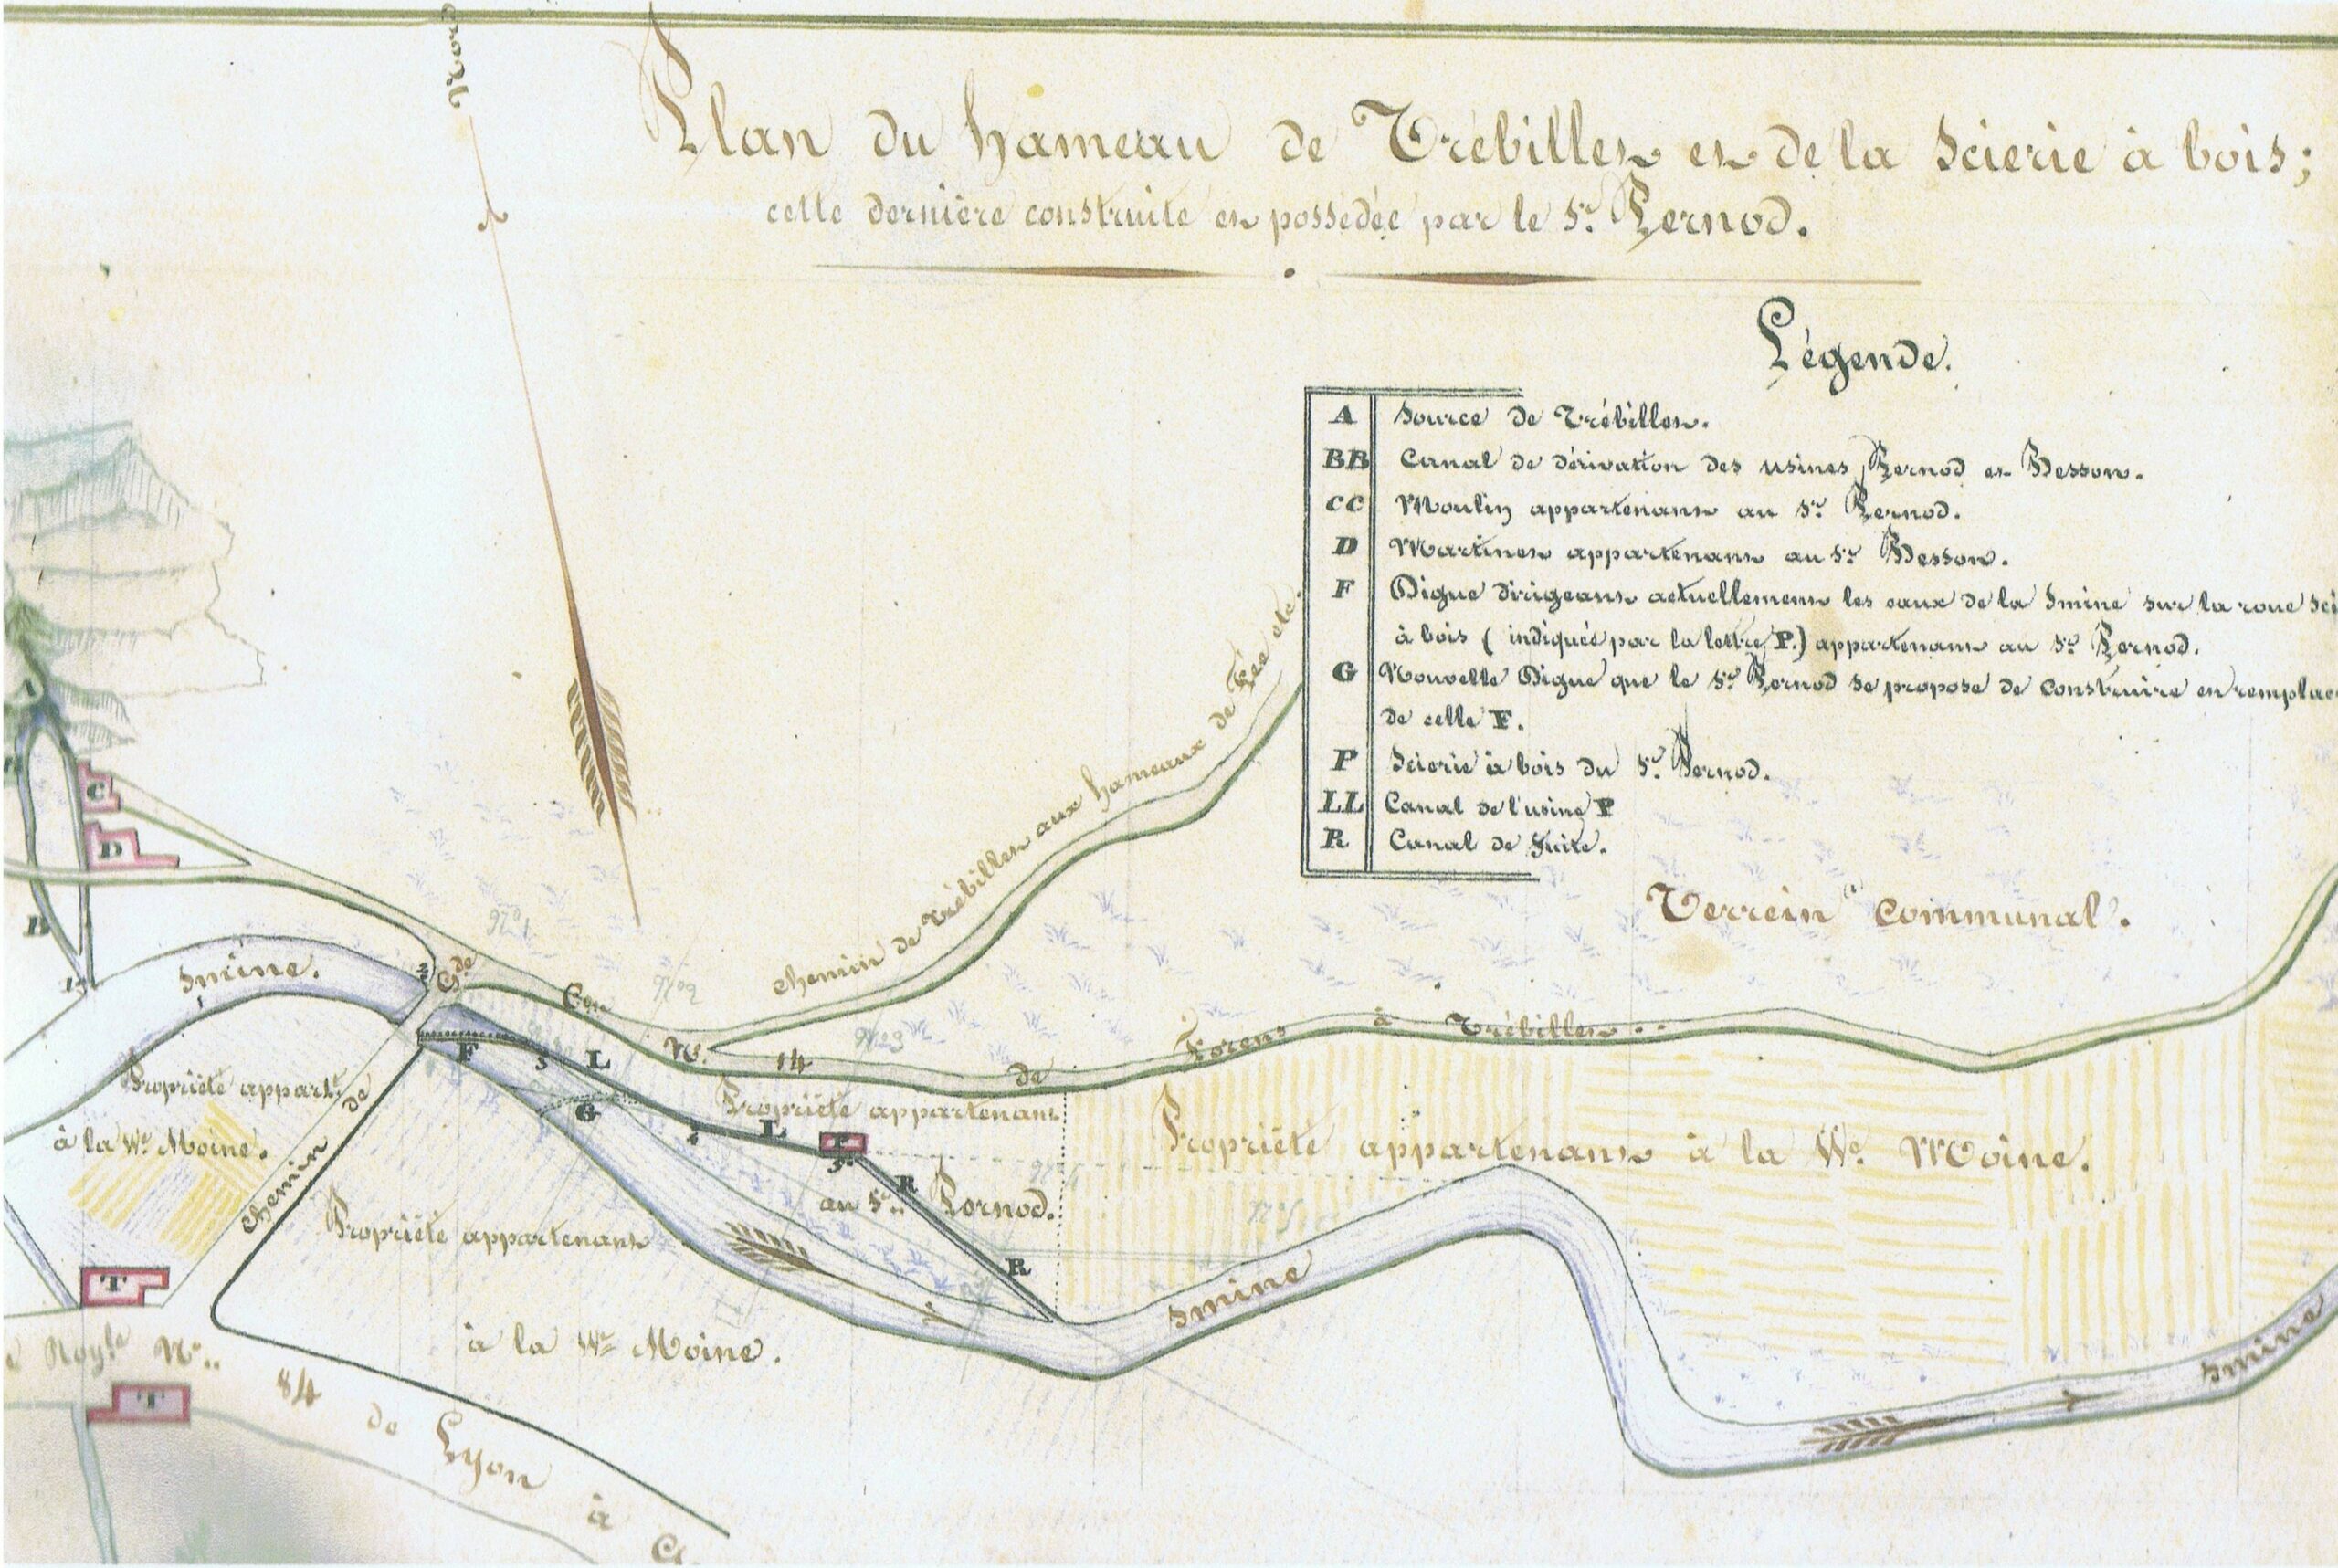 Nord
Plan du hameau de Trébillet et de la Scierie à bois;
cette dernière construite et possédée par le Sr. Pernod.
Légende.
A Source de Trébillet.
BB Canal de dérivation des usines Pernod et Besson.
CC Moulin appartenant au Sr. Pernod.
D Martinet appartenant au Sr. Besson.
F Digue dirigeant actuellement les eaux de la Smine sur la roue sci
à bois (indiquée par la lettre P.) appartenant au Sr. Pernod.
G Nouvelle Digue que le Sr. Pernod se propose de construire en remplac
de celle F.
P Scierie à bois du Sr. Pernod.
LL Canal de l'usine P
R Canal de fuite.
A
C
D
B
chemin de Trébillet aux hameaux de Fée etc.
Terrein communal.
Smine.
Gde Con No. 14 de Forens à Trébillet..
F
L
G
L
R
R
Propriété appart.t
à la Ve. Moine.
chemin de
Propriété appartenant
au Sr. Pernod.
Propriété appartenant à la Ve. Moine.
Propriété appartenant
à la Ve. Moine.
Smine
Smine
T
T
e Roy.le No..
84 de Lyon à G